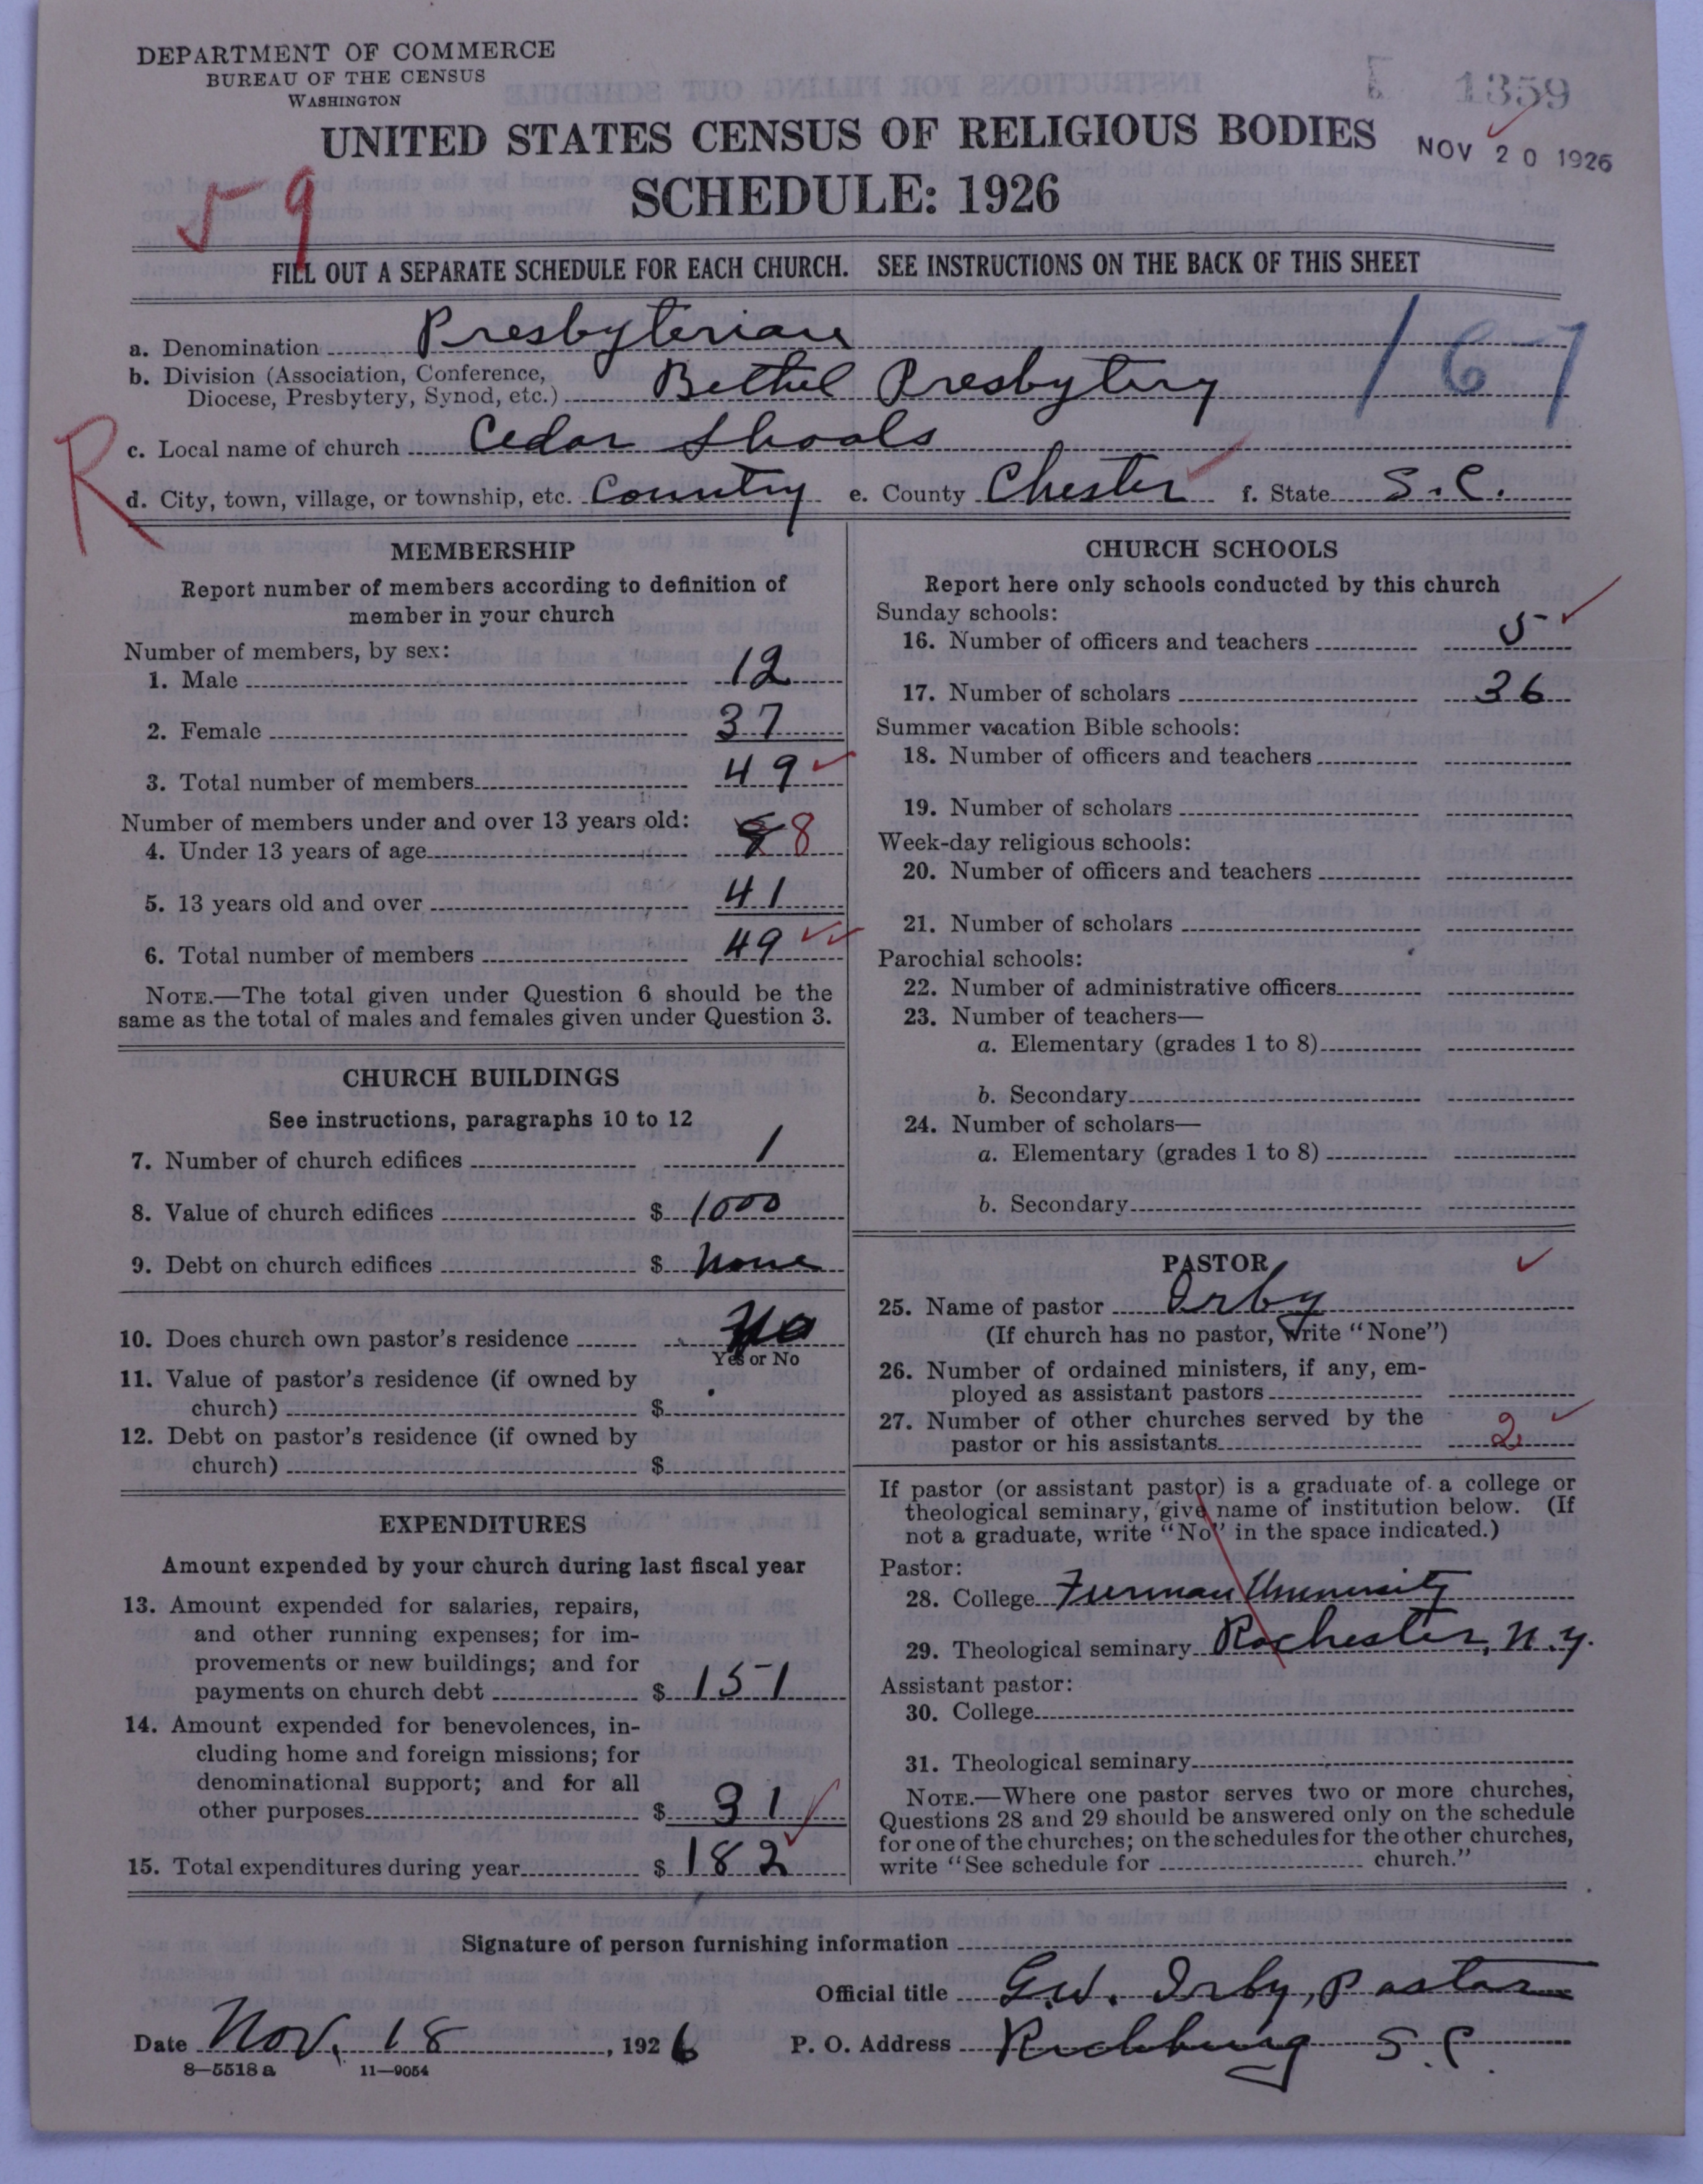 DEPARTMENT OF COMMERCE
BUREAU OF THE CENSUS
WASHINGTON
1359
UNITED STATES CENSUS OF RELIGIOUS BODIES
NOV 20 1926
59
SCHEDULE: 1926
FILL OUT A SEPARATE SCHEDULE FOR EACH CHURCH. SEE INSTRUCTIONS ON THE BACK OF THIS SHEET
a. Denomination Presbyterian
167
b. Division (Association, Conference,
Diocese, Presbytery, Synod, etc.) Bethel Presbytery
R
c. Local name of church Cedar Shoals
d. City, town, village, or township, etc. Country e. County Chester f. State S.C.
MEMBERSHIP
Report number of members according to definition of
member in your church
Number of members, by sex:
1. Male 12
2. Female 37
3. Total number of members 49
Number of members under and over 13 years old:
4. Under 13 years of age 8 8
5. 13 years old and over 41
6. Total number of members 49
NOTE.—The total given under Question 6 should be the
same as the total of males and females given under Question 3.
CHURCH BUILDINGS
See instructions, paragraphs 10 to 12
7. Number of church edifices 1
8. Value of church edifices $ 1000
9. Debt on church edifices $ None
10. Does church own pastor's residence No
Yes or No
11. Value of pastor's residence (if owned by
church) $
12. Debt on pastor's residence (if owned by
church) $
EXPENDITURES
Amount expended by your church during last fiscal year
13. Amount expended for salaries, repairs,
and other running expenses; for im-
provements or new buildings; and for
payments on church debt $ 151
14. Amount expended for benevolences, in-
cluding home and foreign missions; for
denominational support; and for all
other purposes $ 31
15. Total expenditures during year $ 182
CHURCH SCHOOLS
Report here only schools conducted by this church
Sunday schools:
16. Number of officers and teachers 5
17. Number of scholars 36
Summer vacation Bible schools:
18. Number of officers and teachers
19. Number of scholars
Week-day religious schools:
20. Number of officers and teachers
21. Number of scholars
Parochial schools:
22. Number of administrative officers
23. Number of teachers—
a. Elementary (grades 1 to 8)
b. Secondary
24. Number of scholars—
a. Elementary (grades 1 to 8)
b. Secondary
PASTOR
25. Name of pastor Irby
(If church has no pastor, write "None")
26. Number of ordained ministers, if any, em-
ployed as assistant pastors
27. Number of other churches served by the
pastor or his assistants 2
If pastor (or assistant pastor) is a graduate of a college or
theological seminary, give name of institution below. (If
not a graduate, write "No" in the space indicated.)
Pastor:
28. College Furman University
29. Theological seminary Rochester, N.Y.
Assistant pastor:
30. College
31. Theological seminary
NOTE.—Where one pastor serves two or more churches,
Questions 28 and 29 should be answered only on the schedule
for one of the churches; on the schedules for the other churches,
write "See schedule for church."
Signature of person furnishing information
Official title G.W. Irby, Pastor
Date Nov. 18, 1926 P. O. Address Richburg S.C.
8—5518 a 11—9054